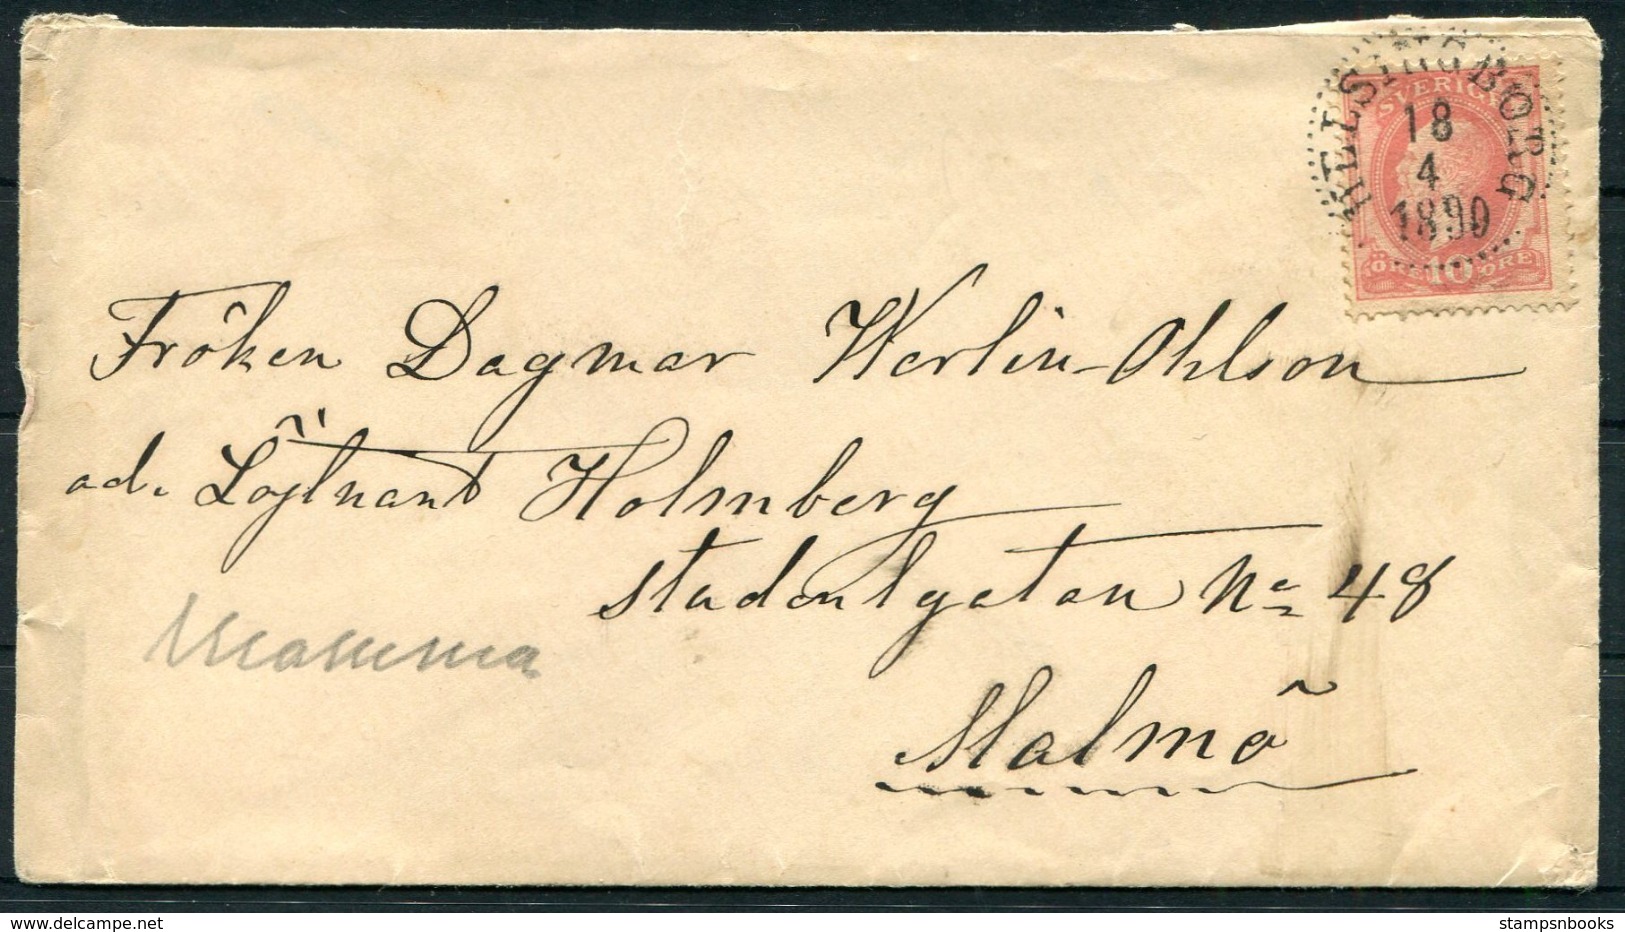 HELSINGBORG
18
4
1890
SVERIGE
ÖRE 10 ÖRE
Fröken Dagmar Werlin-Ohlson
ad. Löjtnant Holmberg
Studentgatan No 48
Mamma
Malmö
www.delcampe.net
stampsnbooks